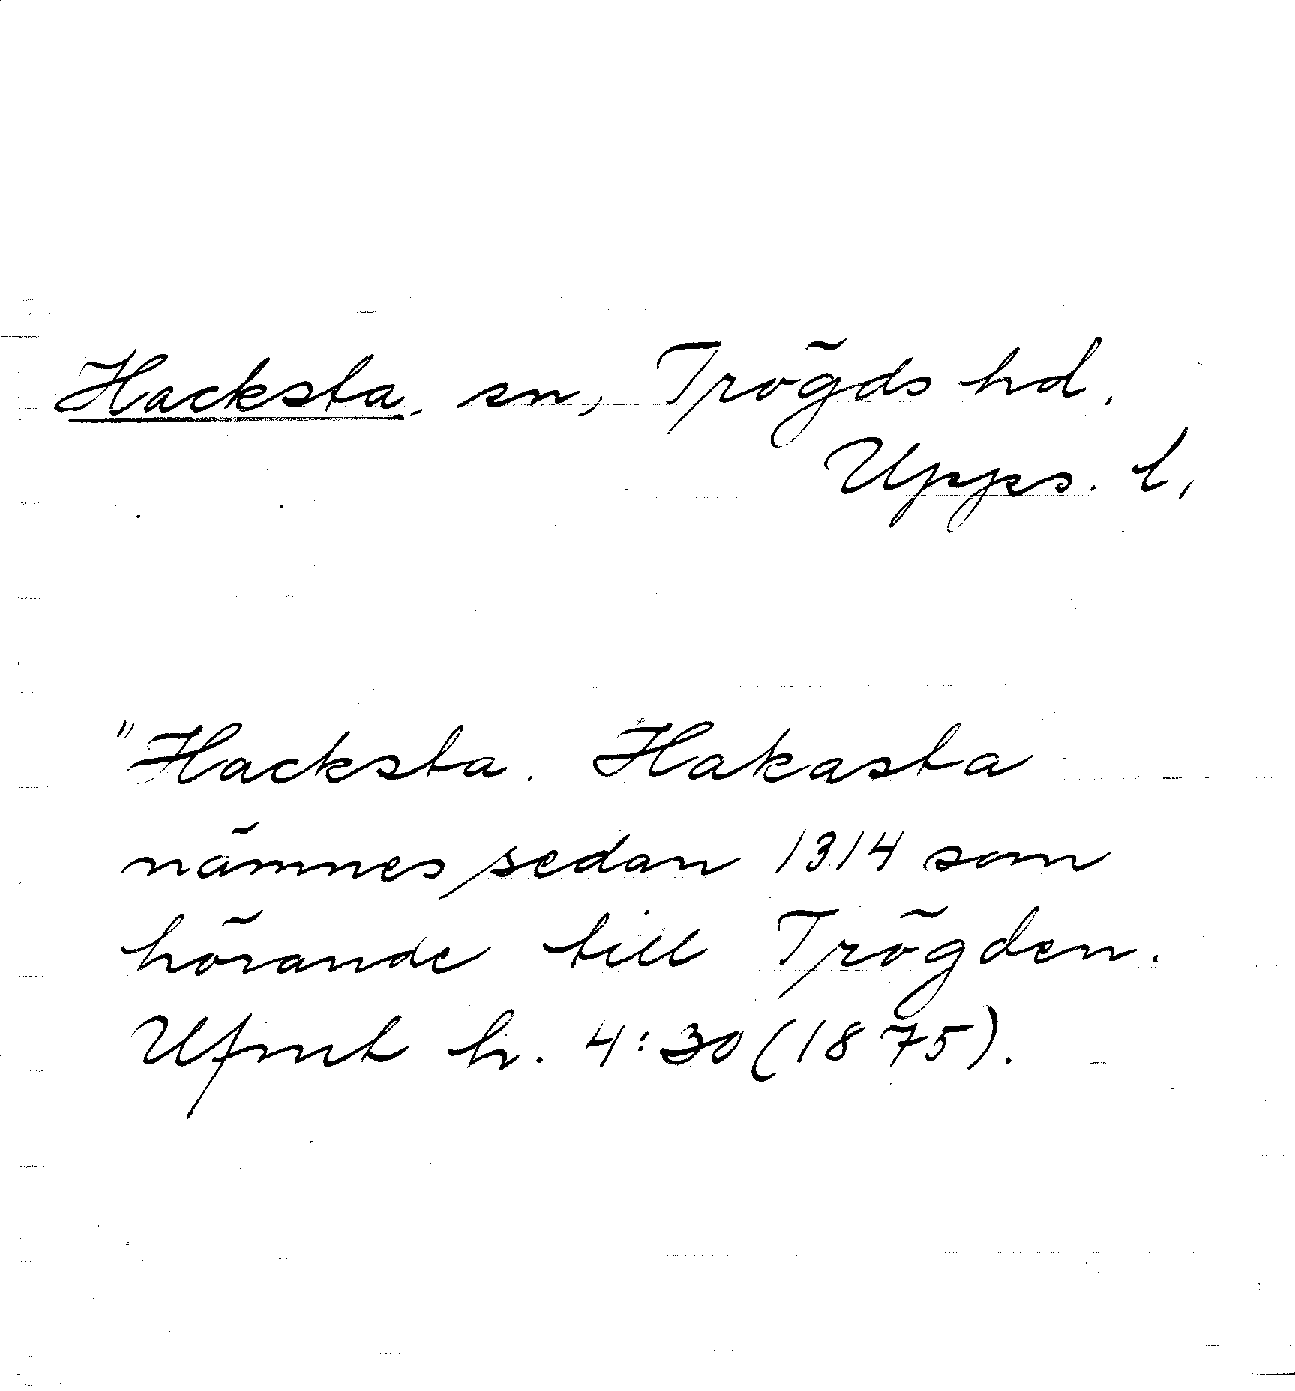 Hacksta, sn, Trögds hd.
Upps. l,
"Hacksta. Hakasta
nämnes sedan 1314 som
hörande till Trögden.
Ufmt h. 4:30 (1875).